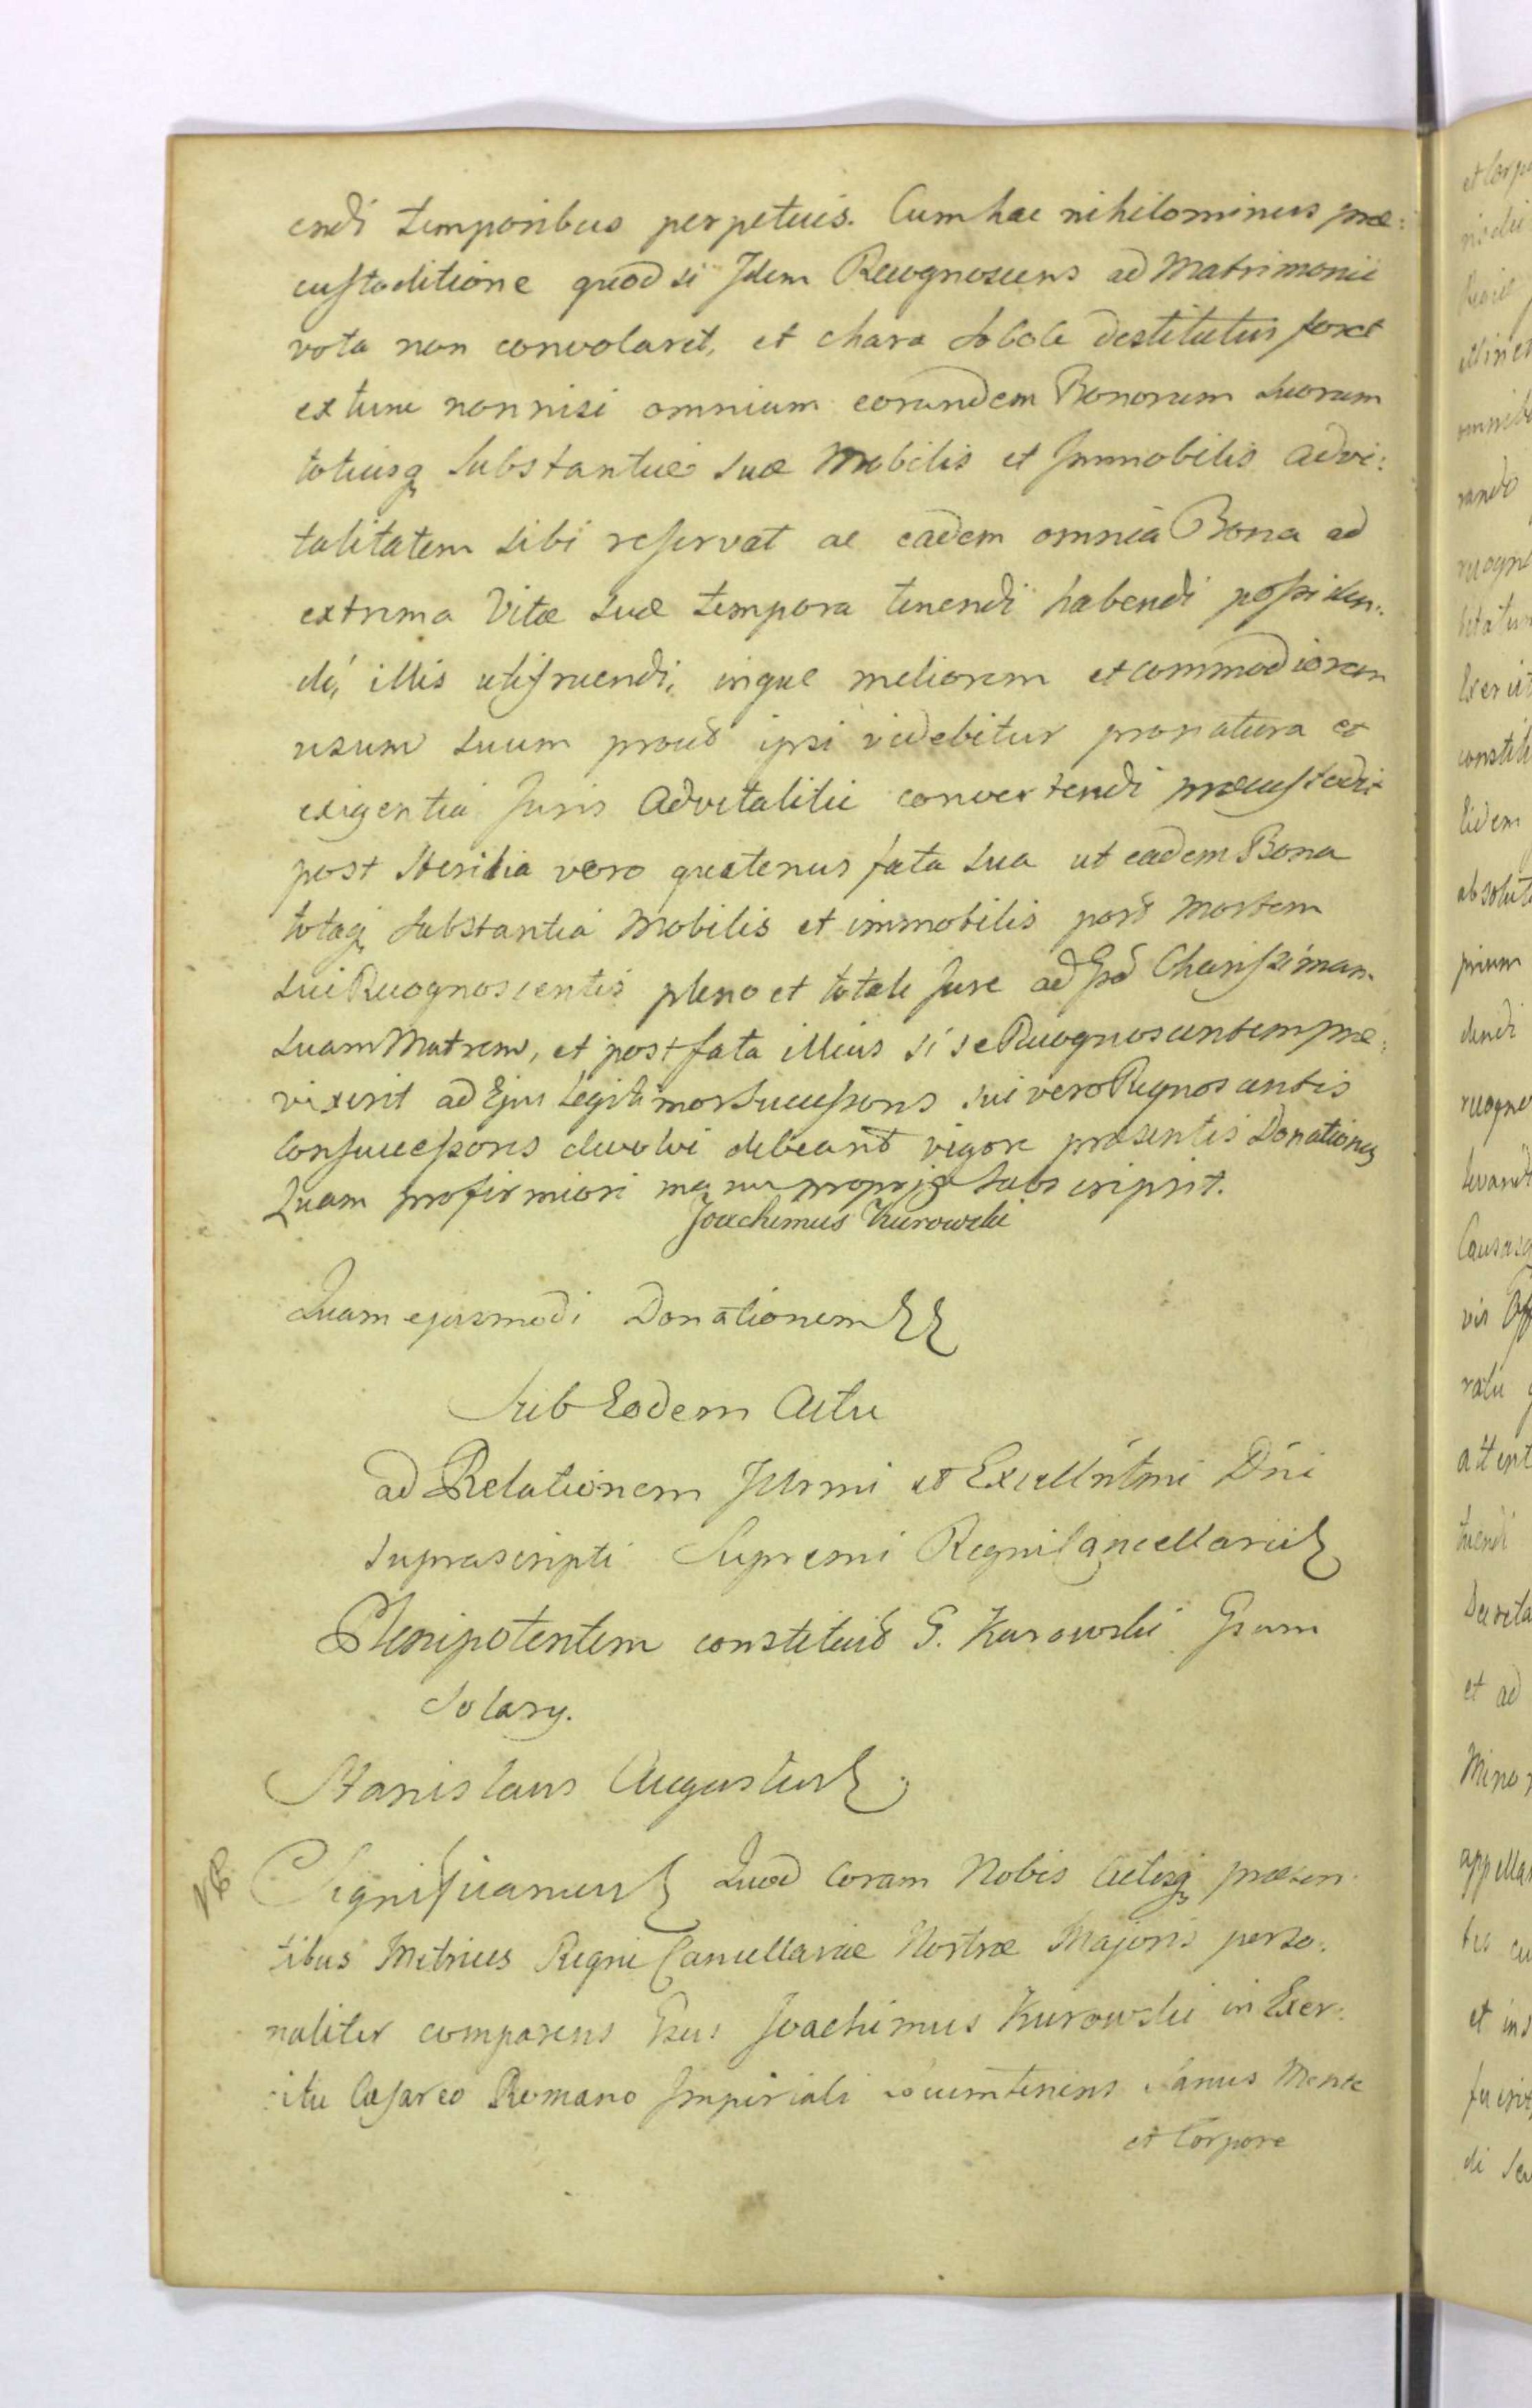 endi temporibus perpetuis. Cum hac nihilominus præ:
custoditione quod si Idem Recognoscens ad Matrimonii
vota non convolaret, et chara Sobole destitutus foret
ex tunc nonnisi omnium eorundem Bonorum Suorum
totiusq Substantiæ Suæ Mobilis et Immobilis advi:
talitatem Sibi reservat ac eadem omnia Bona ad
extrema Vitæ Suæ tempora tenendi habendi possiden:
di, illis utifruendi, inque meliorem et commodiorem
usum Suum prout ipsi videbitur pro natura et
exigentia Juris Advitalitii convertendi præcustodit
post Sterilia vero quatenus fata Sua ut eadem Bona
totaq Substantia Mobilis et immobilis post Mortem
Sui Recognoscentis pleno et totali Jure ad Charissimam
Suam Matrem, et post fata illius si se Recognoscentem præ:
vixerit ad Ejus Legitimos Successores sui vero Recognoscentis
Consuccessores devolvi debeant vigore præsentis Donationis
Quam pro firmiori manu propria Subscripsit.
Joachimus Kurowski
Quam ejusmodi Donationem
Sub Eodem Actu
ad Relationem Illrmi et Excellntmi Dni
Suprascripti Supremi Regni Cancellarii
Plenipotentem constituit G. Kurowski Gsum
Solary.
Stanislaus Augustus
NB Significamus Quod Coram Nobis Actisq præsen:
tibus Metrices Regni Cancellariæ Nostræ Majoris perso:
naliter comparens Gsus Joachimus Kurowski in Exer:
citu Cæsareo Romano Imperiali Locumtenens Sanus Mente
et Corpore